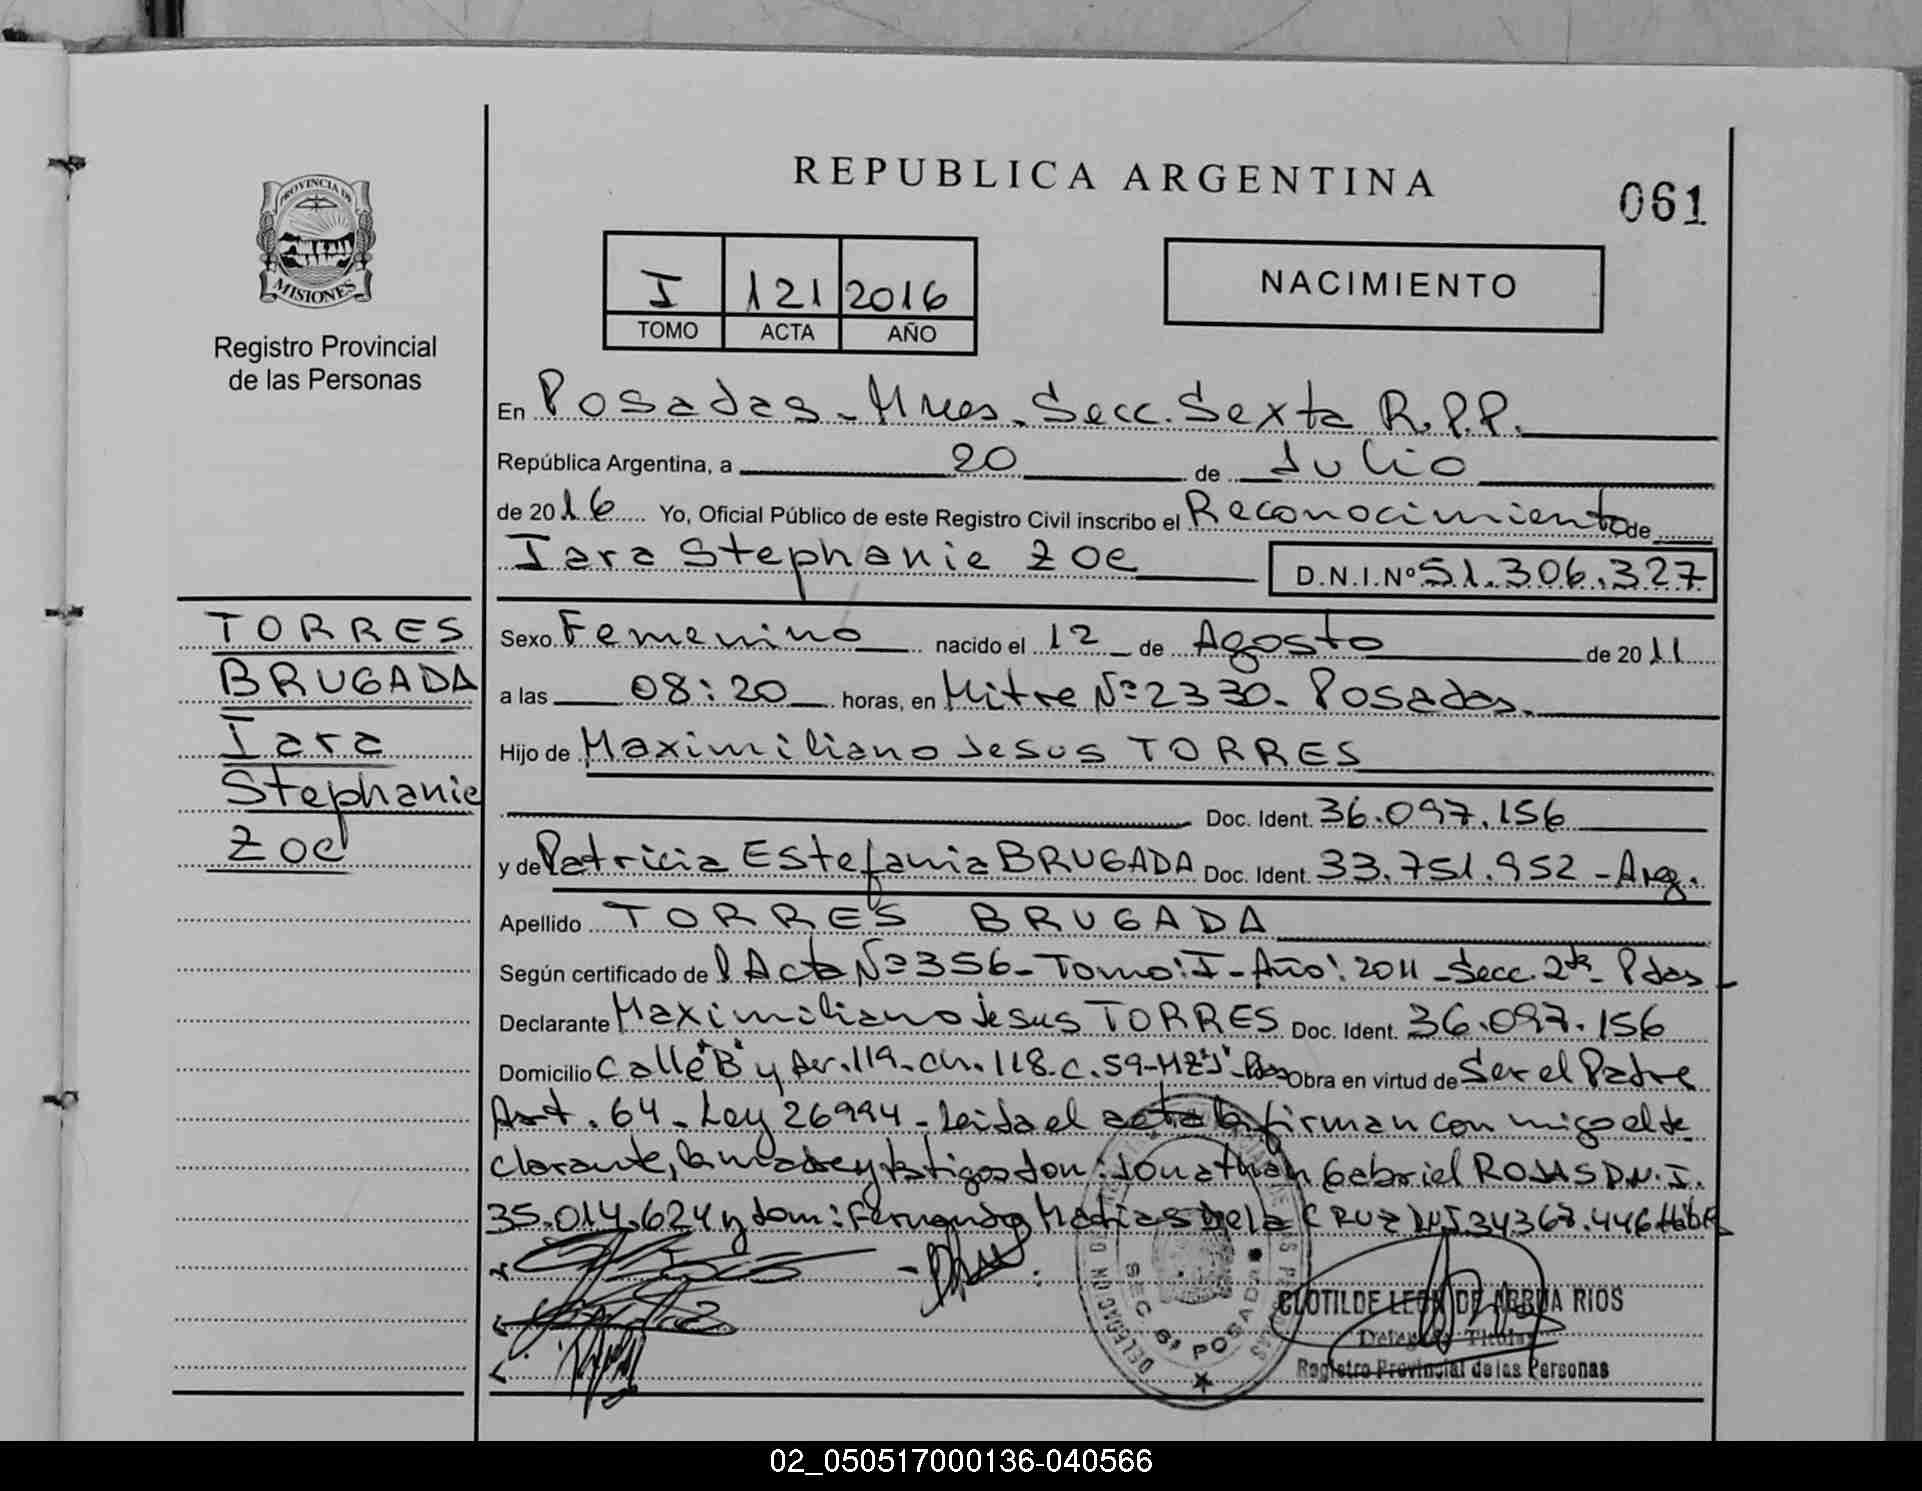 REPUBLICA ARGENTINA
061
PROVINCIA DE
MISIONES
Registro Provincial
de las Personas
I 121 2016
TOMO ACTA AÑO
NACIMIENTO
En Posadas - Mnes. Secc. Sexta R.P.P.
República Argentina, a 20 de Julio
de 2016 Yo, Oficial Público de este Registro Civil inscribo el Reconocimiento de
Iara Stephanie Zoe D.N.I.Nº 51.306.327
TORRES
BRUGADA
Iara
Stephanie
Zoe
Sexo Femenino nacido el 12 de Agosto de 2011
a las 08:20 horas, en Mitre Nº 2330 - Posadas.
Hijo de Maximiliano Jesus TORRES
Doc. Ident. 36.097.156
y de Patricia Estefania BRUGADA Doc. Ident. 33.751.952 - Arg.
Apellido TORRES BRUGADA
Según certificado de l Acta Nº 356 - Tomo: I - Año: 2011 - Secc. 2da - Pdas -
Declarante Maximiliano Jesus TORRES Doc. Ident. 36.097.156
Domicilio Calle "B" y Av. 119 - Ch. 118 - C. 59 - Mz "J" - Pdas Obra en virtud de Ser el Padre
Art. 64 - Ley 26994 - Leida el acta la firman con migo el de
clarante, la madre y testigos don: Jonathan Gabriel ROJAS D.N.I.
35.014.624 y dom: Fernando Matias De la CRUZ DNI 34367.446
DELEGACION
SEC. 6ª POSADAS
CLOTILDE LEON DE ABRUA RIOS
Delegada Titular
Registro Provincial de las Personas
02_050517000136-040566